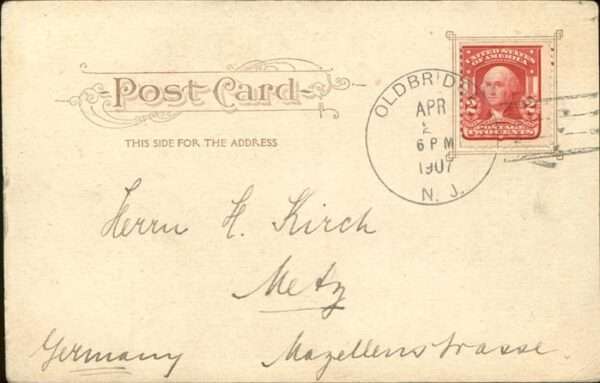 Post Card
THIS SIDE FOR THE ADDRESS
OLDBRIDGE
APR
2
6 PM
1907
N. J.
UNITED STATES
OF AMERICA
2 2
POSTAGE
TWO CENTS
Herrn H. Kirch
Metz
Germany Mazellenstrasse.